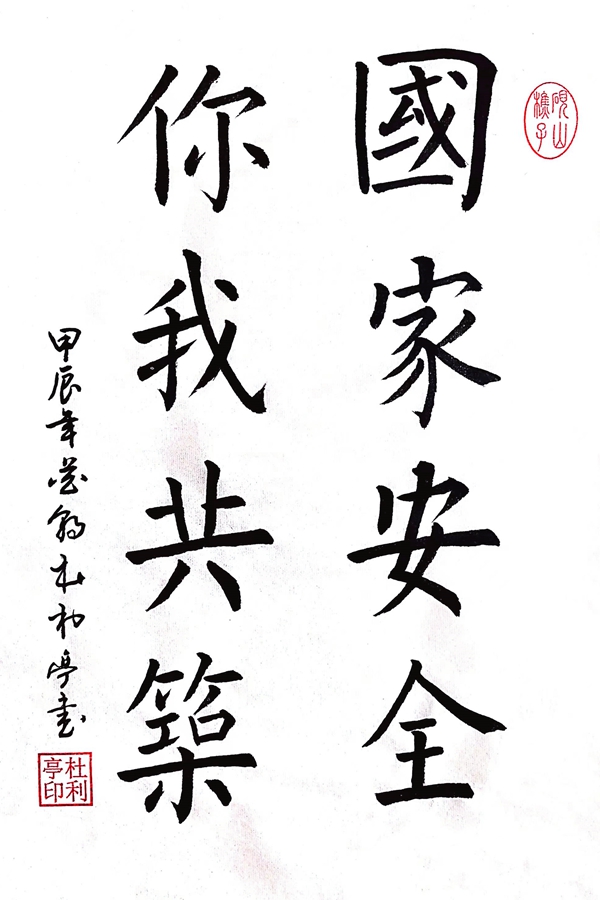 硯山樵子
國家安全
你我共築
甲辰年荷翁杜利亭書
杜利亭印